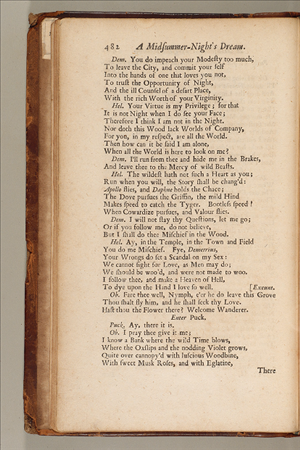 482 A Midsummer-Night's Dream.
Dem. You do impeach your Modesty too much,
To leave the City, and commit your self
Into the hands of one that loves you not,
To trust the Opportunity of Night,
And the ill Counsel of a desart Place,
With the rich Worth of your Virginity.
Hel. Your Virtue is my Privilege; for that
It is not Night when I do see your Face;
Therefore I think I am not in the Night.
Nor doth this Wood lack Worlds of Company,
For you, in my respect, are all the World.
Then how can it be said I am alone,
When all the World is here to look on me?
Dem. I'll run from thee and hide me in the Brakes,
And leave thee to the Mercy of wild Beasts.
Hel. The wildest hath not such a Heart as you;
Run when you will, the Story shall be chang'd:
Apollo flies, and Daphne holds the Chace;
The Dove pursues the Griffin, the mild Hind
Makes speed to catch the Tyger. Bootless speed!
When Cowardize pursues, and Valour flies.
Dem. I will not stay thy Questions, let me go;
Or if you follow me, do not believe,
But I shall do thee Mischief in the Wood.
Hel. Ay, in the Temple, in the Town and Field
You do me Mischief. Fye, Demetrius,
Your Wrongs do set a Scandal on my Sex:
We cannot fight for Love, as Men may do;
We should be woo'd, and were not made to woo.
I follow thee, and make a Heaven of Hell,
To dye upon the Hand I love so well. [Exeunt.
Ob. Fare thee well, Nymph, e'er he do leave this Grove
Thou shalt fly him, and he shall seek thy Love.
Hast thou the Flower there? Welcome Wanderer.
Enter Puck.
Puck. Ay, there it is.
Ob. I pray thee give it me;
I know a Bank where the wild Time blows,
Where the Oxslips and the nodding Violet grows,
Quite over cannopy'd with luscious Woodbine,
With sweet Musk Roses, and with Eglatine,
There